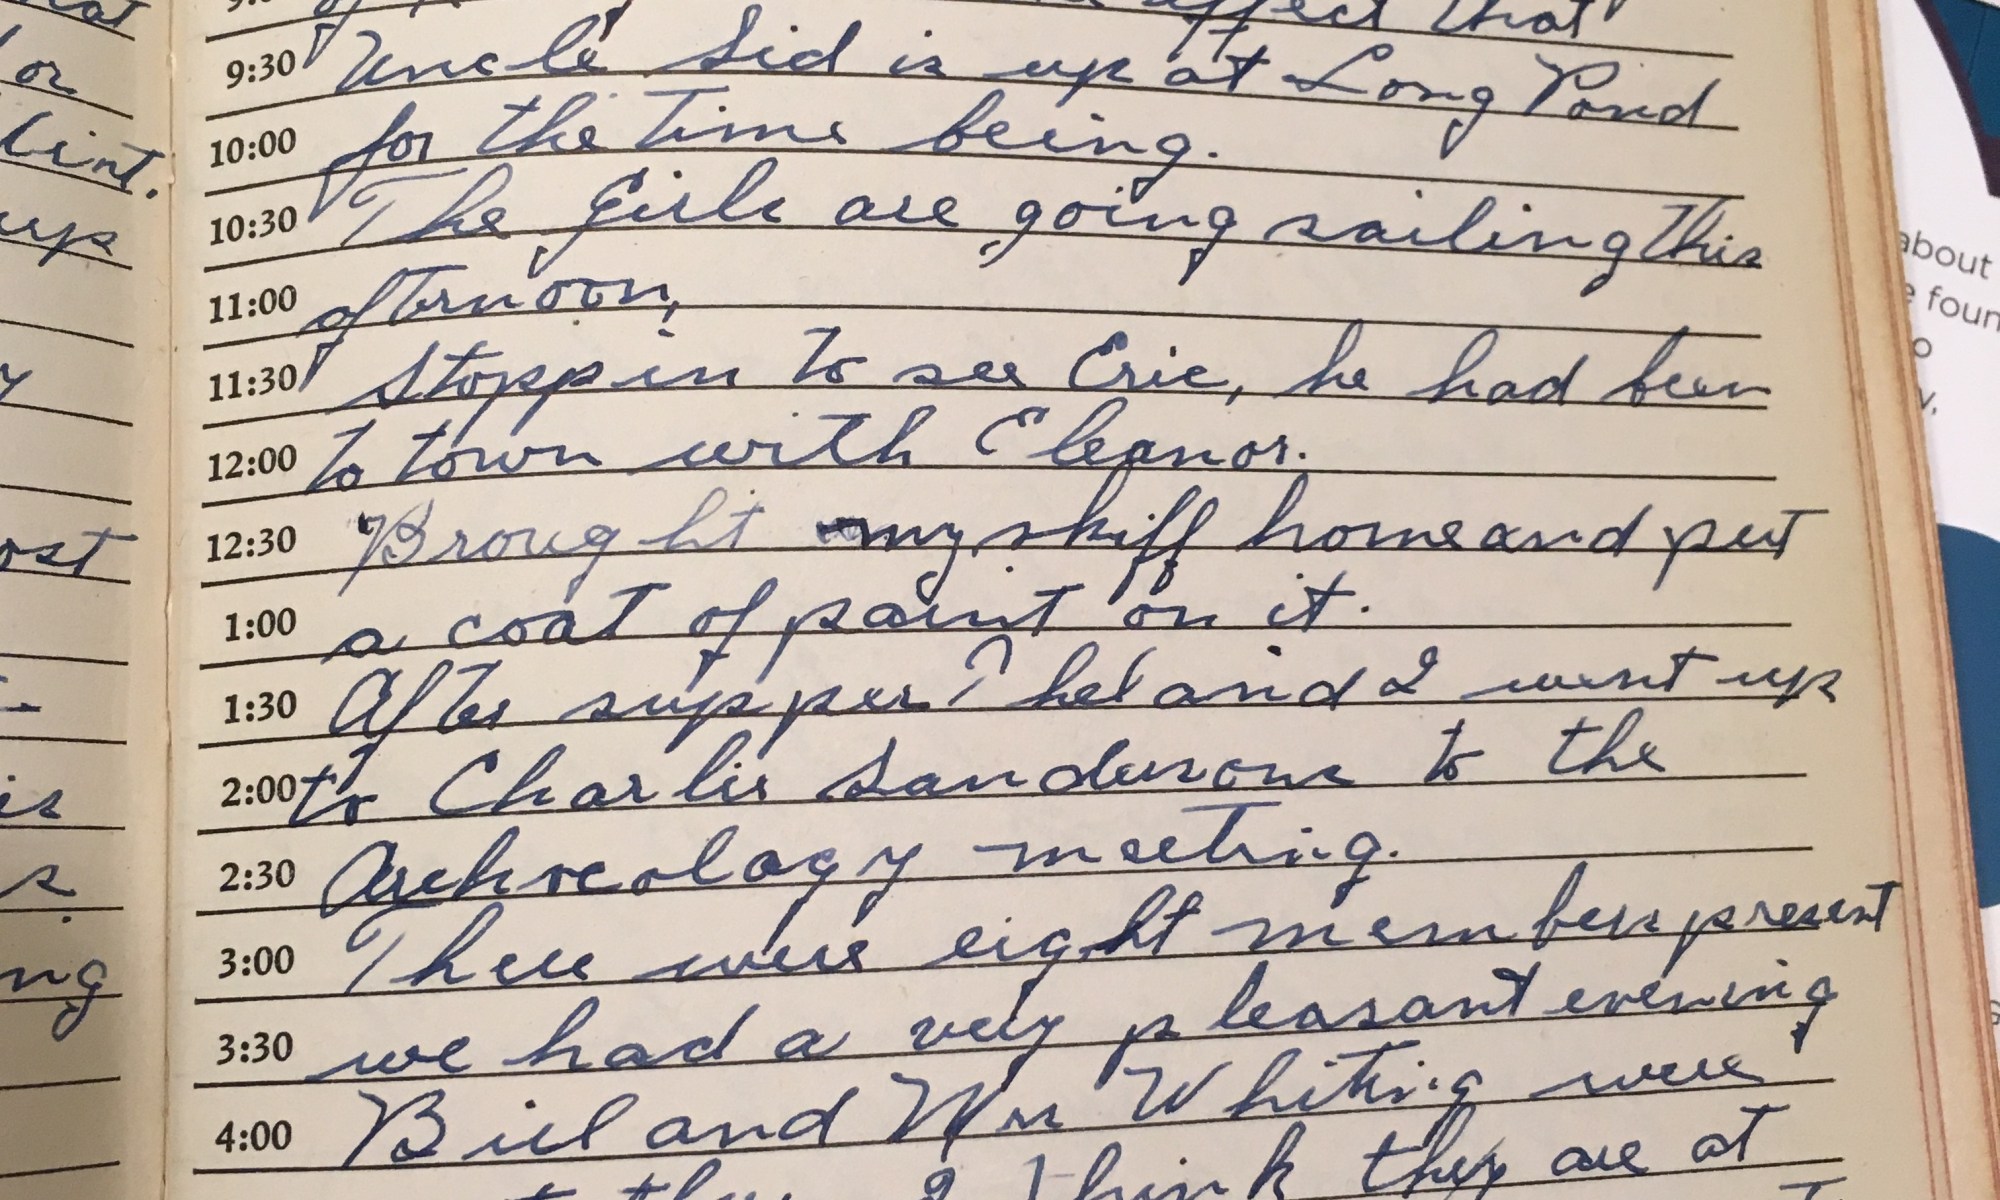 affect that
9:30 Uncle Sid is up at Long Pond
10:00 for the time being.
10:30 The Girls are going sailing this
11:00 afternoon,
11:30 Stopp in to see Eric, he had been
12:00 to town with Eleanor.
12:30 Brought my skiff home and put
1:00 a coat of paint on it.
1:30 After supper Thel and I went up
2:00 to Charlie Sandersons to the
2:30 Archeology meeting.
3:00 There were eight members present
3:30 we had a very pleasant evening
4:00 Bill and Whiting were
I think they are at
or
up
ost
is
ng
about
foun